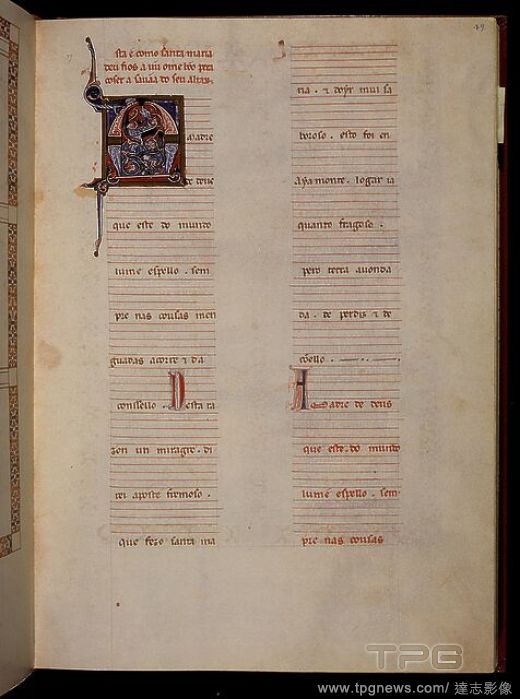 sta é como santa maria
deu fios a un ome bõo pera
coser a savãa do seu altar.
A Madre
de deus
que este do mundo
lume espello . sem
pre nas cousas men
guadas acorre ⁊ da
conssello . Desta ra
zon un miragre . di
rei aposte fremoso .
que fezo santa ma
ria . ⁊ doyr mui sa
boroso . esto foi en
Ayamonte . logar ia
quanto fragoso .
pero terra avonda
da . de perdiz ⁊ de
cõello .
A Madre de deus
que este . do mundo
lume espello . sem
pre nas cousas
TPG
www.tpgnews.com / 達志影像